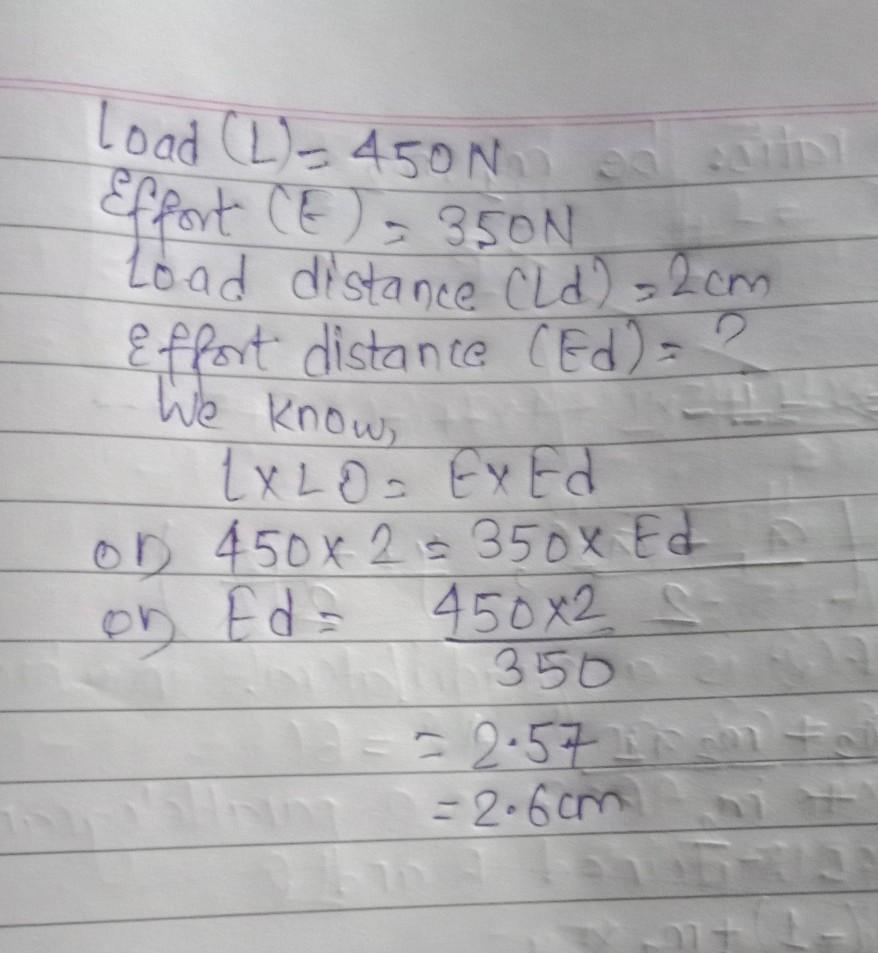 Load (L) = 450N
Effort (E) = 350N
Load distance (Ld) = 2cm
Effort distance (Ed) = ?
We know,
L×LD = E×Ed
or, 450×2 = 350×Ed
or, Ed = 450×2
350
= 2.57
= 2.6cm